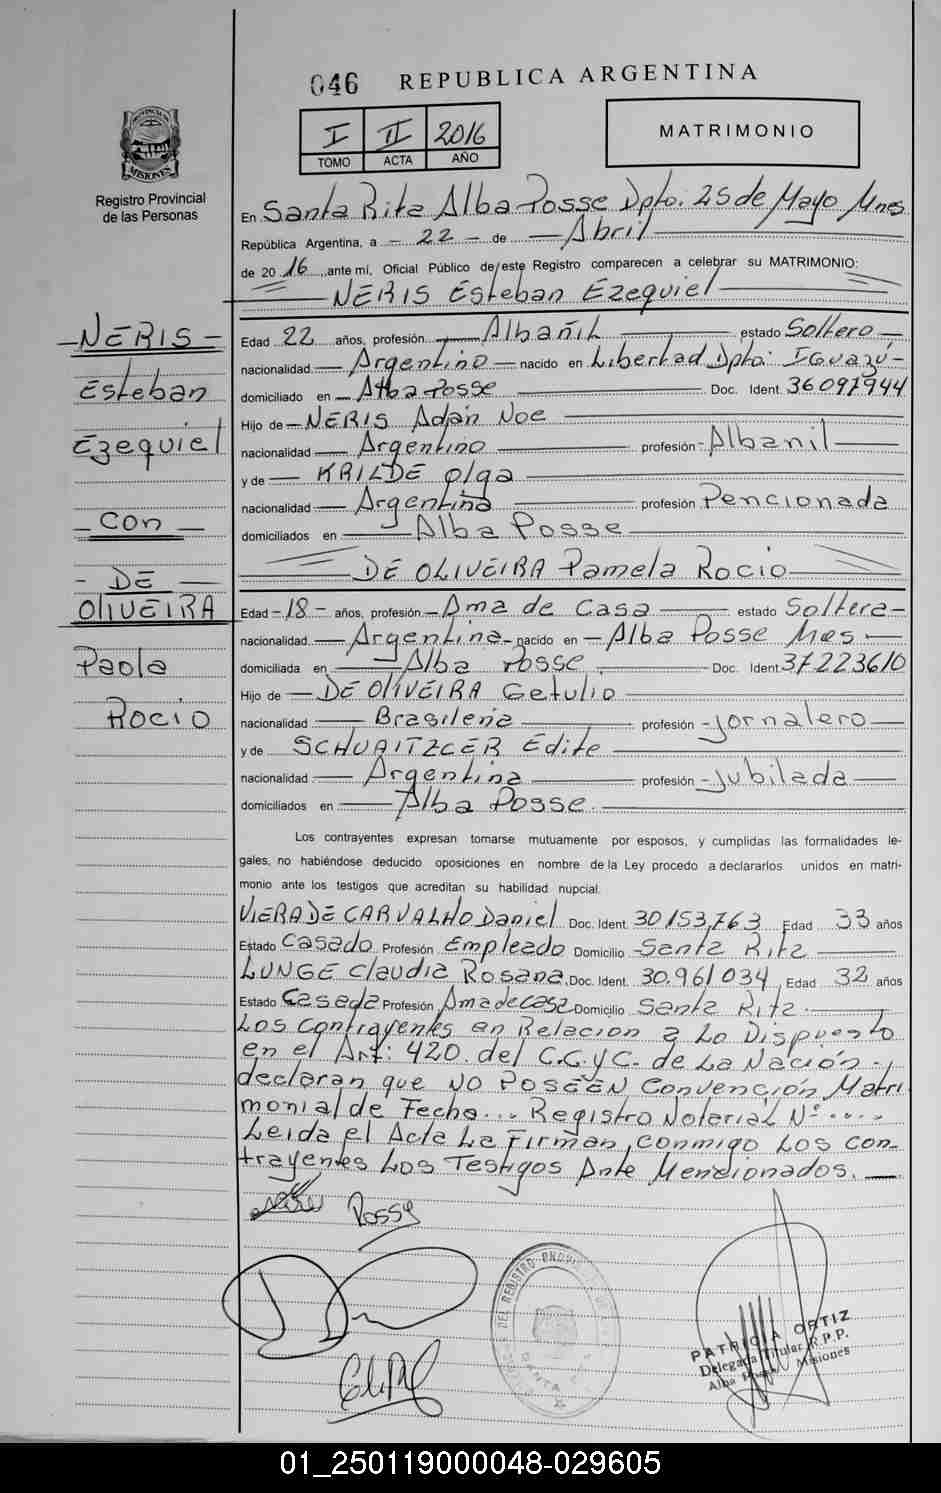 046 REPUBLICA ARGENTINA
PROVINCIA DE MISIONES
Registro Provincial
de las Personas
I II 2016
TOMO ACTA AÑO
MATRIMONIO
En Santa Rita Alba Posse Dpto. 25 de Mayo Mnes
República Argentina, a - 22 - de Abril
de 20 16 ,ante mí, Oficial Público de este Registro comparecen a celebrar su MATRIMONIO:
NERIS Esteban Ezequiel
NERIS
Esteban
Ezequiel
- con -
- DE
OLIVEIRA
Paola
Rocio
Edad 22 años, profesión Albañil estado Soltero
nacionalidad Argentino nacido en Libertad Dpto: Iguazú
domiciliado en Alba Posse Doc. Ident. 36097944
Hijo de NERIS Adán Noe
nacionalidad Argentino profesión Albanil
y de KRILDE Olga
nacionalidad Argentina profesión Pencionada
domiciliados en Alba Posse
DE OLIVEIRA Pamela Rocio
Edad - 18 - años, profesión Ama de Casa estado Soltera
nacionalidad Argentina nacido en Alba Posse Mes
domiciliada en Alba Posse Doc. Ident. 37223610
Hijo de DE OLIVEIRA Getulio
nacionalidad Brasileña profesión Jornalero
y de SCHUAITZCER Edite
nacionalidad Argentina profesión Jubilada
domiciliados en Alba Posse
Los contrayentes expresan tomarse mutuamente por esposos, y cumplidas las formalidades le-
gales, no habiéndose deducido oposiciones en nombre de la Ley procedo a declararlos unidos en matri-
monio ante los testigos que acreditan su habilidad nupcial.
VIERA DE CARVALHO Daniel Doc. Ident. 30153,763 Edad 33 años
Estado Casado Profesión Empleado Domicilio Santa Rita
LUNGE Claudia Rosana Doc. Ident. 30.961034 Edad 32 años
Estado Casada Profesión Ama de casa Domicilio Santa Rita
Los Contrayentes en Relacion a Lo Dispuesto
en el Art: 420. del C.C.y C. de La Nación.
declaran que NO POSEEN Convención Matri
monial de Fecha... Registro Notarial Nº ....
Leida el Acta La Firman conmigo Los con-
trayentes Los Testigos Ante Mencionados.
Rossy
PATRICIA ORTIZ
Delegada Titular R.P.P.
Alba Posse Misiones
01_250119000048-029605